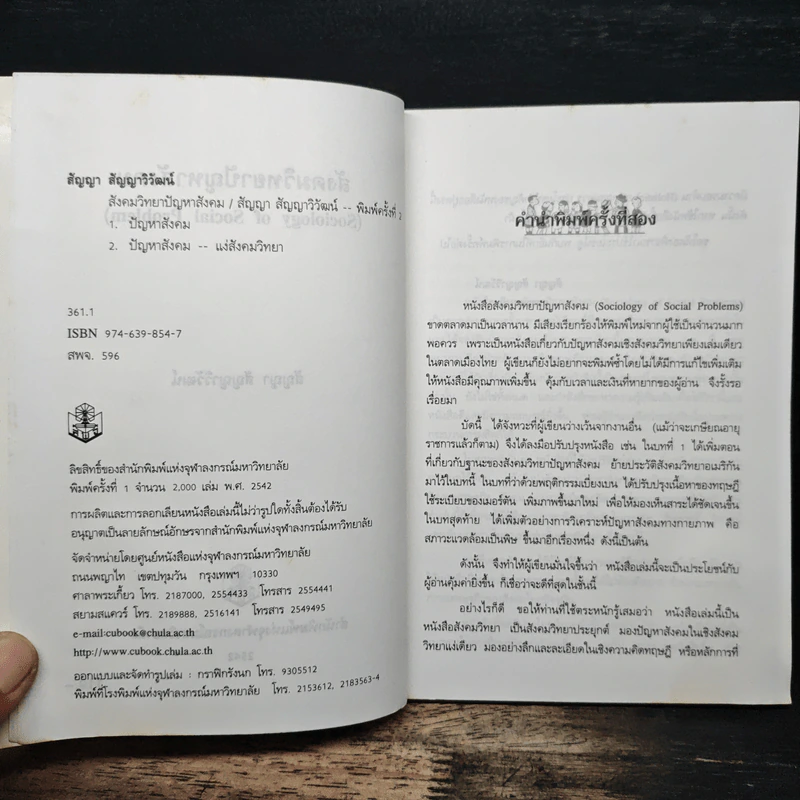 สัญญา สัญญาวิวัฒน์
สังคมวิทยาปัญหาสังคม / สัญญา สัญญาวิวัฒน์ -- พิมพ์ครั้งที่ 2
1. ปัญหาสังคม
2. ปัญหาสังคม -- แง่สังคมวิทยา
361.1
ISBN 974-639-854-7
สพจ. 596
ลิขสิทธิ์ของสำนักพิมพ์แห่งจุฬาลงกรณ์มหาวิทยาลัย
พิมพ์ครั้งที่ 1 จำนวน 2,000 เล่ม พ.ศ. 2542
การผลิตและการลอกเลียนหนังสือเล่มนี้ไม่ว่ารูปใดทั้งสิ้นต้องได้รับ
อนุญาตเป็นลายลักษณ์อักษรจากสำนักพิมพ์แห่งจุฬาลงกรณ์มหาวิทยาลัย
จัดจำหน่ายโดยศูนย์หนังสือแห่งจุฬาลงกรณ์มหาวิทยาลัย
ถนนพญาไท เขตปทุมวัน กรุงเทพฯ 10330
ศาลาพระเกี้ยว โทร. 2187000, 2554433 โทรสาร 2554441
สยามสแควร์ โทร. 2189888, 2516141 โทรสาร 2549495
e-mail:cubook@chula.ac.th
http://www.cubook.chula.ac.th
ออกแบบและจัดทำรูปเล่ม : กราฟิกรังนก โทร. 9305512
พิมพ์ที่โรงพิมพ์แห่งจุฬาลงกรณ์มหาวิทยาลัย โทร. 2153612, 2183563-4
คำนำพิมพ์ครั้งที่สอง
หนังสือสังคมวิทยาปัญหาสังคม (Sociology of Social Problems)
ขาดตลาดมาเป็นเวลานาน มีเสียงเรียกร้องให้พิมพ์ใหม่จากผู้ใช้เป็นจำนวนมาก
พอควร เพราะเป็นหนังสือเกี่ยวกับปัญหาสังคมเชิงสังคมวิทยาเพียงเล่มเดียว
ในตลาดเมืองไทย ผู้เขียนก็ยังไม่อยากจะพิมพ์ซ้ำโดยไม่ได้มีการแก้ไขเพิ่มเติม
ให้หนังสือมีคุณภาพเพิ่มขึ้น คุ้มกับเวลาและเงินที่หายากของผู้อ่าน จึงรั้งรอ
เรื่อยมา
บัดนี้ ได้จังหวะที่ผู้เขียนว่างเว้นจากงานอื่น (แม้ว่าจะเกษียณอายุ
ราชการแล้วก็ตาม) จึงได้ลงมือปรับปรุงหนังสือ เช่น ในบทที่ 1 ได้เพิ่มตอน
ที่เกี่ยวกับฐานะของสังคมวิทยาปัญหาสังคม ย้ายประวัติสังคมวิทยาอเมริกัน
มาไว้ในบทนี้ ในบทที่ว่าด้วยพฤติกรรมเบี่ยงเบน ได้ปรับปรุงเนื้อหาของทฤษฎี
ไร้ระเบียบของเมอร์ตัน เพิ่มภาพขึ้นมาใหม่ เพื่อให้มองเห็นสาระได้ชัดเจนขึ้น
ในบทสุดท้าย ได้เพิ่มตัวอย่างการวิเคราะห์ปัญหาสังคมทางกายภาพ คือ
สภาวะแวดล้อมเป็นพิษ ขึ้นมาอีกเรื่องหนึ่ง ดังนี้เป็นต้น
ดังนั้น จึงทำให้ผู้เขียนมั่นใจขึ้นว่า หนังสือเล่มนี้จะเป็นประโยชน์กับ
ผู้อ่านคุ้มค่ายิ่งขึ้น ก็เชื่อว่าจะดีที่สุดในชั้นนี้
อย่างไรก็ดี ขอให้ท่านที่ใช้ตระหนักรู้เสมอว่า หนังสือเล่มนี้เป็น
หนังสือสังคมวิทยา เป็นสังคมวิทยาประยุกต์ มองปัญหาสังคมในเชิงสังคม
วิทยาแง่เดียว มองอย่างลึกและละเอียดในเชิงความคิดทฤษฎี หรือหลักการที่